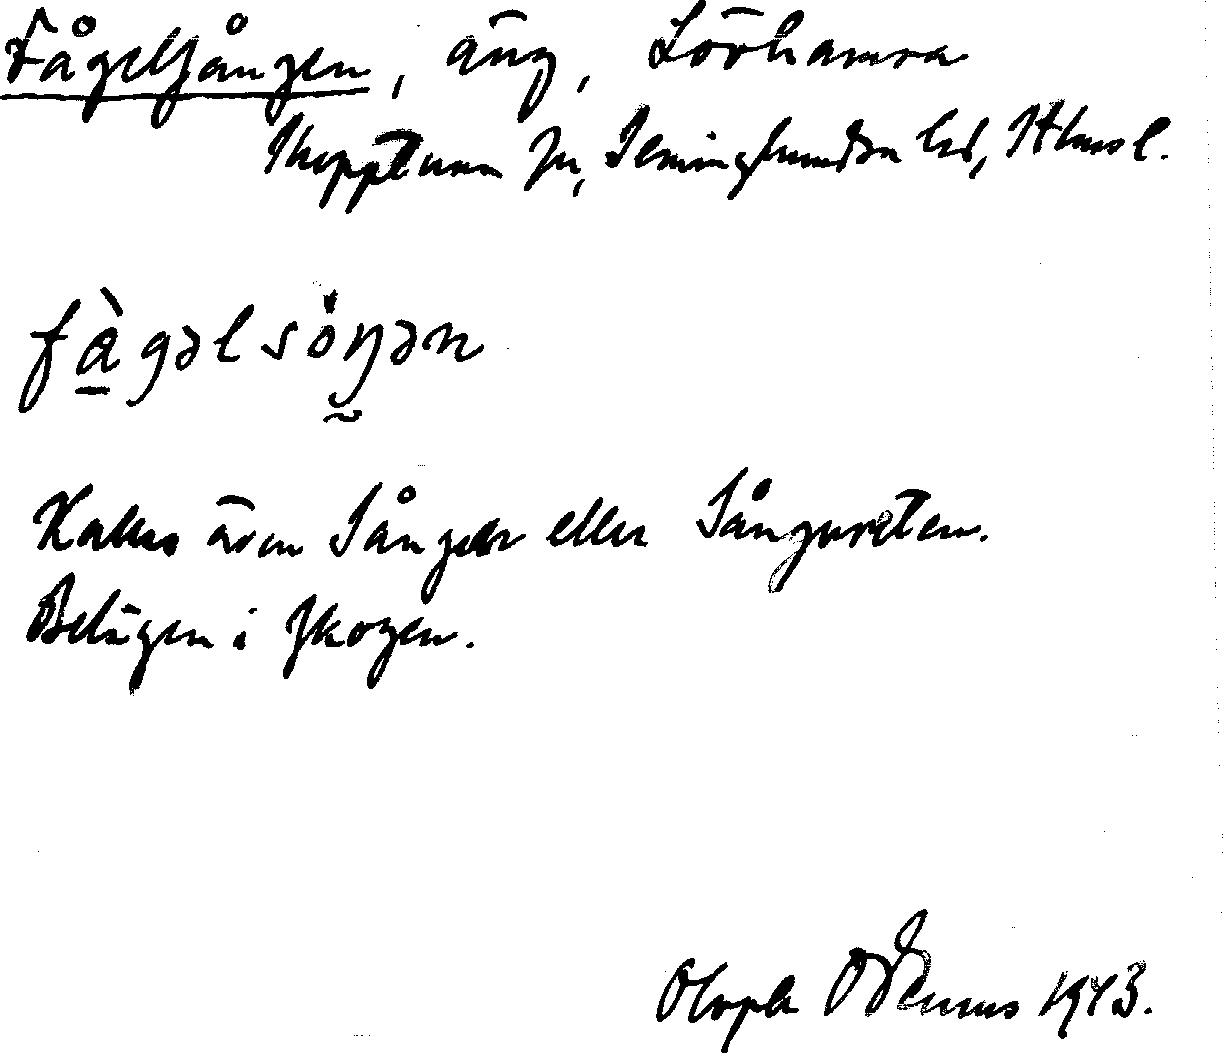 Fågelsången, äng, Lövhamra
Skepptuna sn, Seminghundra hd, Sthms l.
fàgəlsöŋən
Kallas även Sången eller Sångureten.
Belägen i skogen.
Olof Odenius 1943.